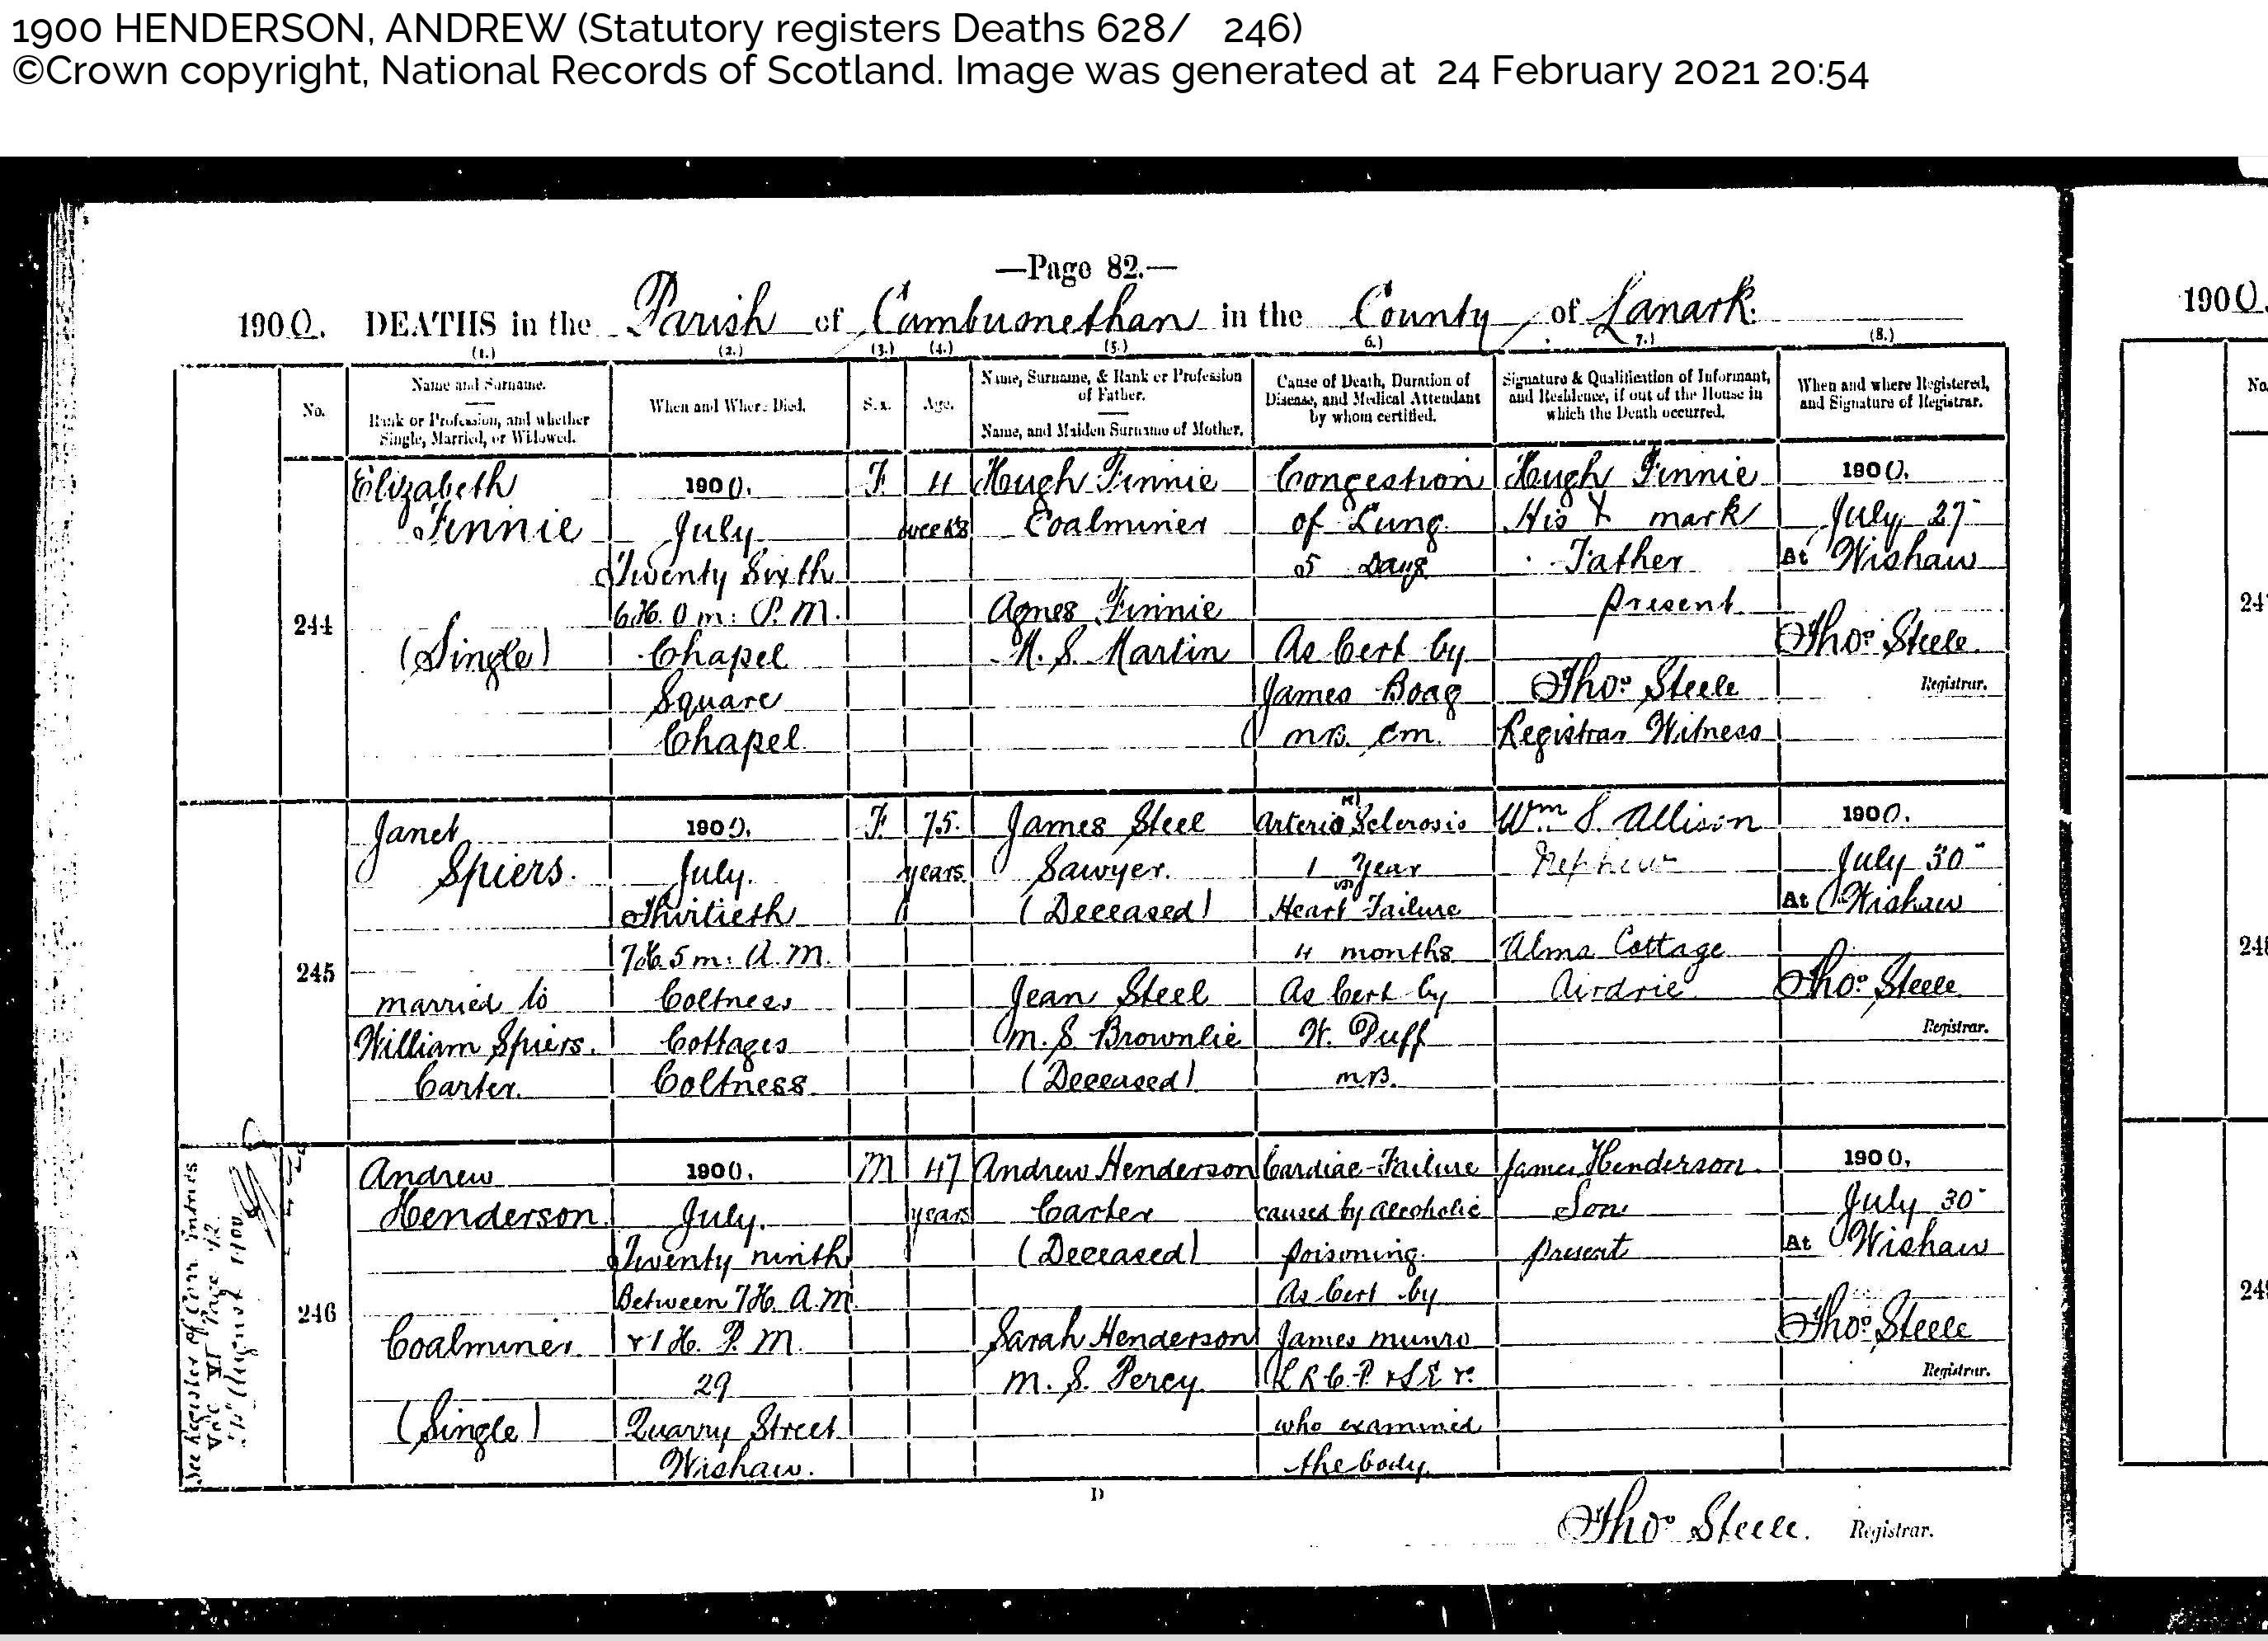 1900 HENDERSON, ANDREW (Statutory registers Deaths 628/ 246)
©Crown copyright, National Records of Scotland. Image was generated at 24 February 2021 20:54
—Page 82.—
1900. DEATHS in the Parish of Cambusnethan in the County of Lanark.
1900.
(1.) (2.) (3.) (4.) (5.) 6.) 7.) (8.)
No.
Name and Surname.
Rank or Profession, and whether
Single, Married, or Widowed.
When and Where Died.
Sex.
Age.
Name, Surname, & Rank or Profession
of Father.
Name, and Maiden Surname of Mother.
Cause of Death, Duration of
Disease, and Medical Attendant
by whom certified.
Signature & Qualification of Informant,
and Residence, if out of the House in
which the Death occurred.
When and where Registered,
and Signature of Registrar.
No.
244
Elizabeth
Finnie
(Single)
1900.
July
Twenty Sixth
6 H. 0 m. P.M.
Chapel
Square
Chapel
F.
4
weeks
Hugh Finnie
Coalminer
Agnes Finnie
M. S. Martin
Congestion
of Lung
5 Days
As Cert by
James Boag
M.B. C.M.
Hugh Finnie
His X mark
Father
present
Thos. Steele
Registrar Witness
1900.
July 27
At Wishaw
Thos. Steele.
Registrar.
245
Janet
Spiers.
married to
William Spiers.
Carter.
1900.
July.
Thirtieth
7 H. 5 m. A.M.
Coltness
Cottages
Coltness
F
75.
years
James Steel
Sawyer.
(Deceased)
Jean Steel
M. S. Brownlie
(Deceased)
Arterio Sclerosis
1 Year
Heart Failure
4 months
As Cert by
W. Duff
M.B.
Wm. S. Allison
Nephew
Alma Cottage
Airdrie
1900.
July 30
At Wishaw
Thos. Steele
Registrar.
246
See Register of Corr. Entries
Vol VI Page 42
August 1900
Andrew
Henderson
Coalminer
(Single)
1900.
July.
Twenty ninth
Between 7 H. A.M.
& 1 H. P.M.
29
Quarry Street
Wishaw.
M
47
years
Andrew Henderson
Carter
(Deceased)
Sarah Henderson
M. S. Percy
Cardiac Failure
caused by alcoholic
poisoning.
As Cert by
James Munro
L R C P & S E &c
who examined
the body
James Henderson.
Son
present
1900.
July 30
At Wishaw
Thos. Steele
Registrar.
D
Thos. Steele. Registrar.